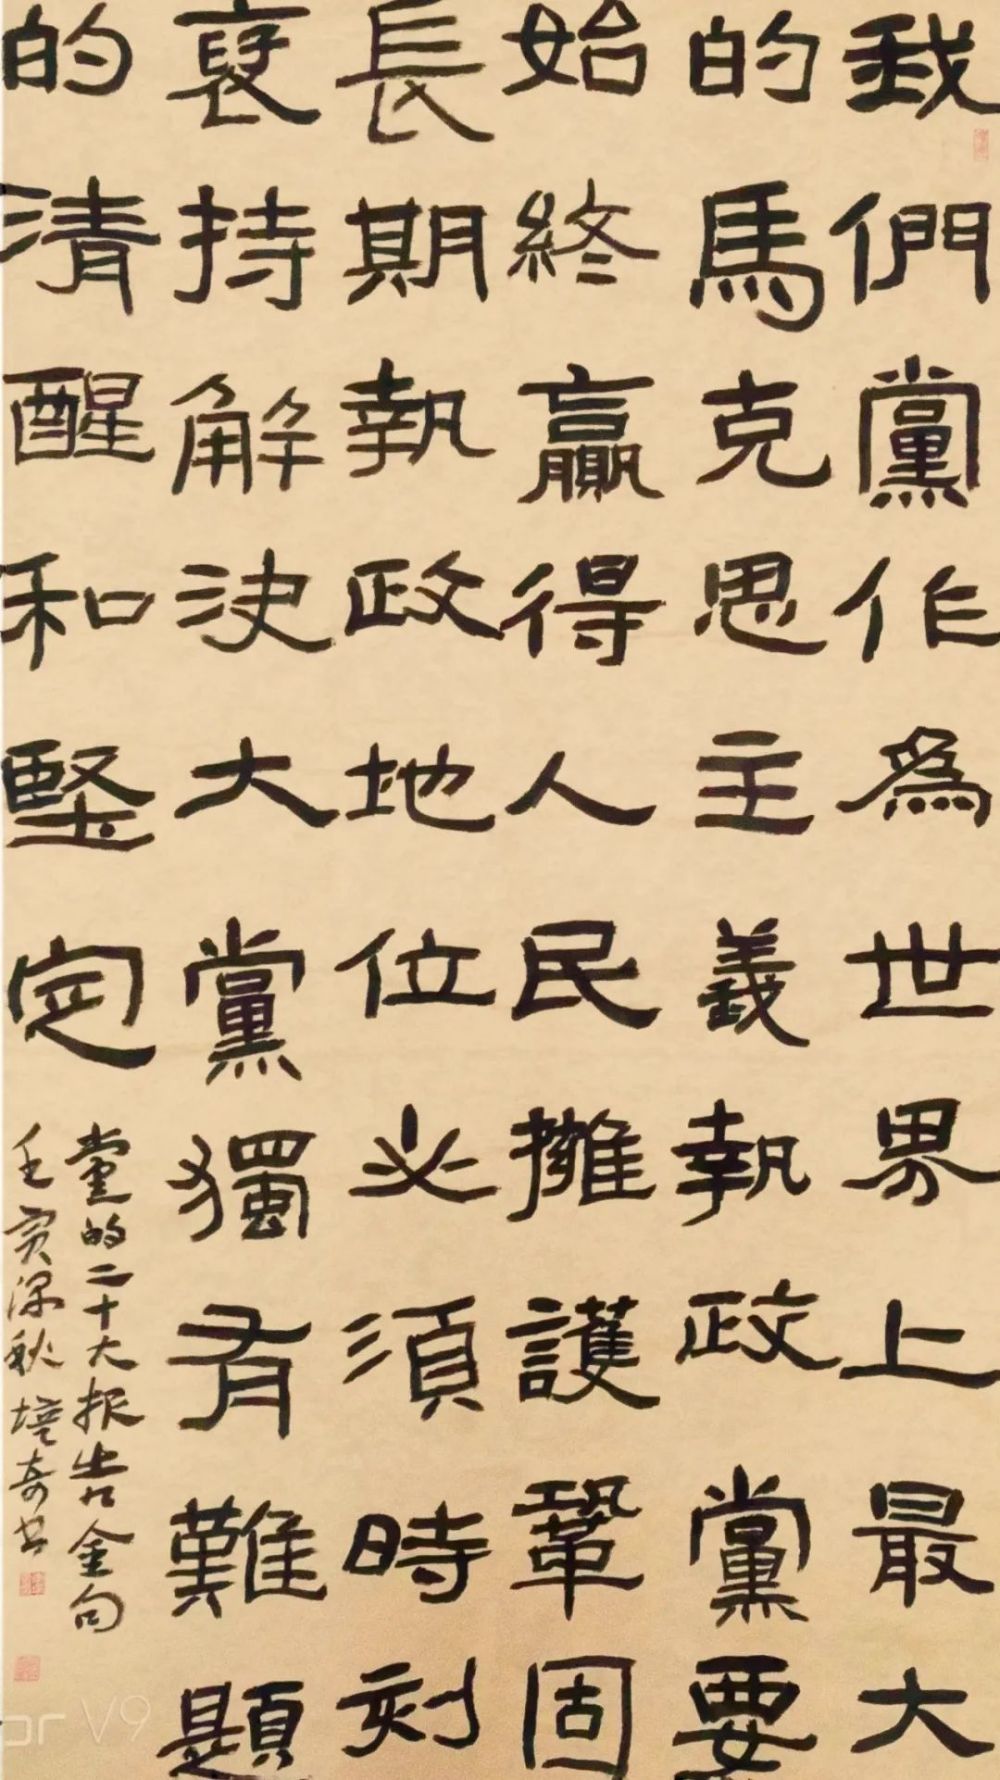 我們黨作為世界上最大
的馬克思主義執政黨要
始終贏得人民擁護鞏固
長期執政地位必須時刻
裏持解決大黨獨有難題
的清醒和堅定
黨的二十大报告金句
壬寅深秋培奇书
or V9